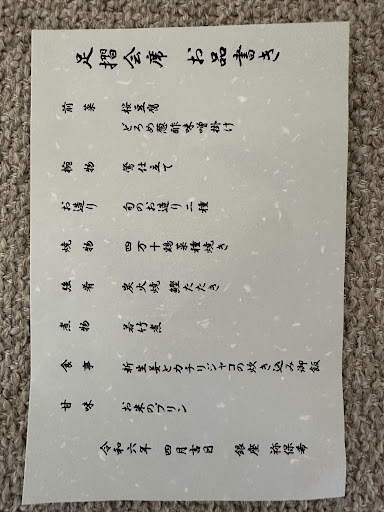 足摺会席 お品書き
前菜 桜豆腐
どろめ葱酢味噌掛け
椀物 鶯仕立て
お造り 旬のお造り二種
焼物 四万十鶏菜種焼き
強肴 炭火焼鰹たたき
煮物 若竹煮
食事 新生姜とカチリジャコの炊き込み御飯
甘味 お米のプリン
令和六年 四月吉日 銀座 祢保希